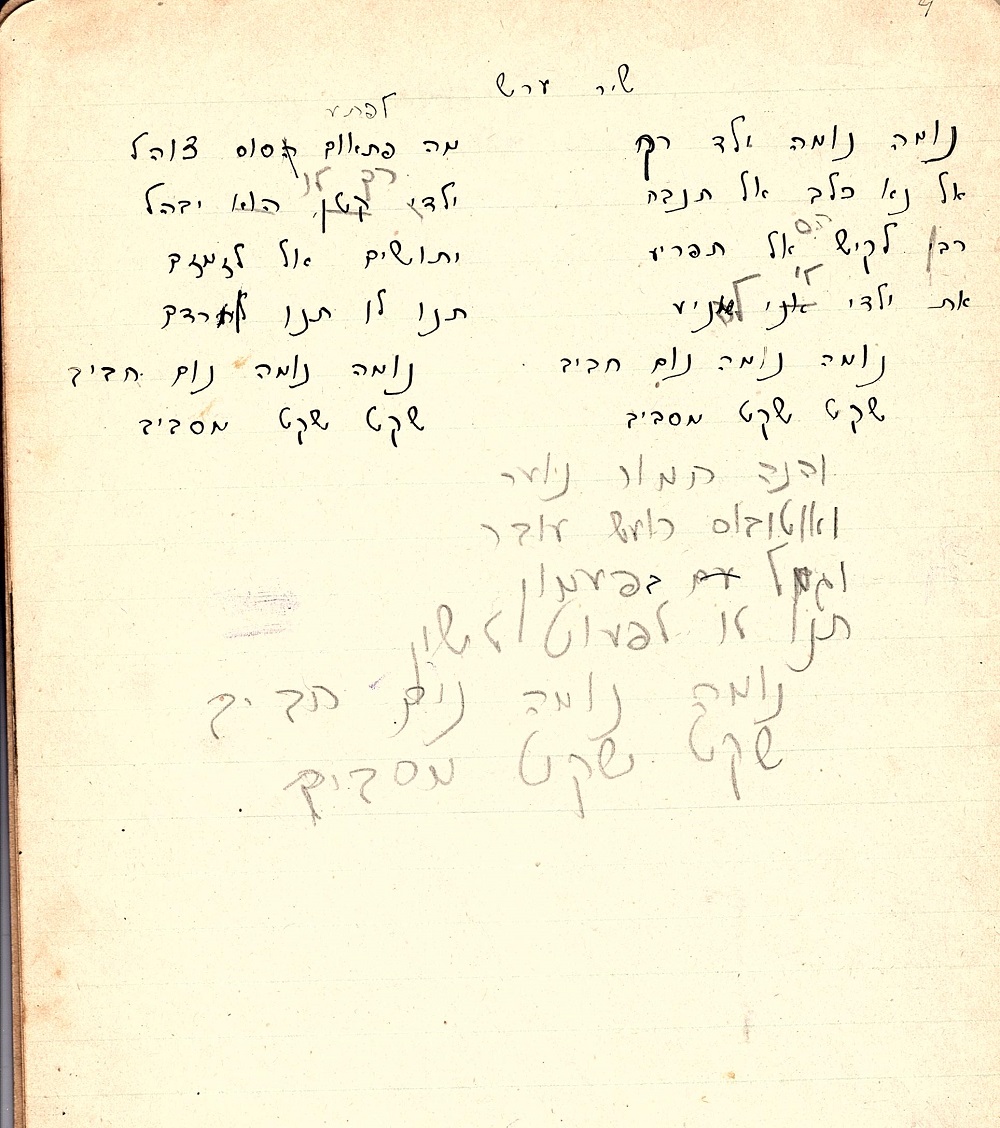 שיר ערש
נומה נומה ילד רך
אל נא כלב אל תנבח
הס
רבן לקיש אל תפריע
לי
את ילדי אני
נומה נומה נום חביב
שקט שקט מסביב
לפתע
מה פתאום הסוס צוהל
רך לו
ילדי קטן הוא יבהל
יתושים אל לזמזם
תנו לו תנו להרדם
נומה נומה נום חביב
שקט שקט מסביב
והנה חמור נוער
ואוטובוס רועש עובר
וגמל עם בפעמון
תנו לו לפעוט לישון
נומה נומה נום חביב
שקט שקט מסביב